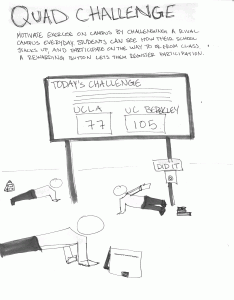 QUAD CHALLENGE
MOTIVATE EXERCISE ON CAMPUS BY CHALLENGING A RIVAL
CAMPUS EVERYDAY. STUDENTS CAN SEE HOW THEIR SCHOOL
STACKS UP, AND PARTICIPATE ON THE WAY TO OR FROM CLASS.
A REWARDING BUTTON LETS THEM REGISTER PARTICIPATION.
TODAY'S CHALLENGE
UCLA UC BERKELEY
77 105
DID IT